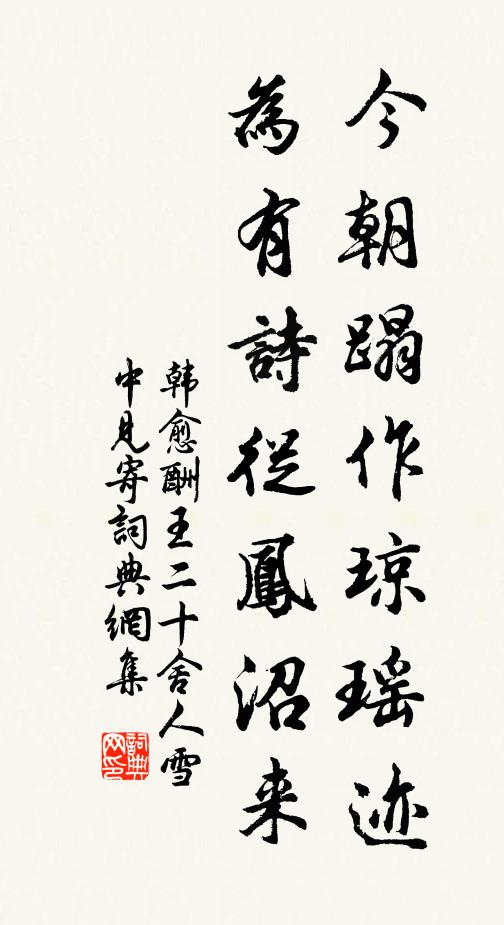 今朝蹋作琼瑶迹
為有詩從鳳沼来
韩愈酬王二十舍人雪
中見寄詞典網集
詞典
网印